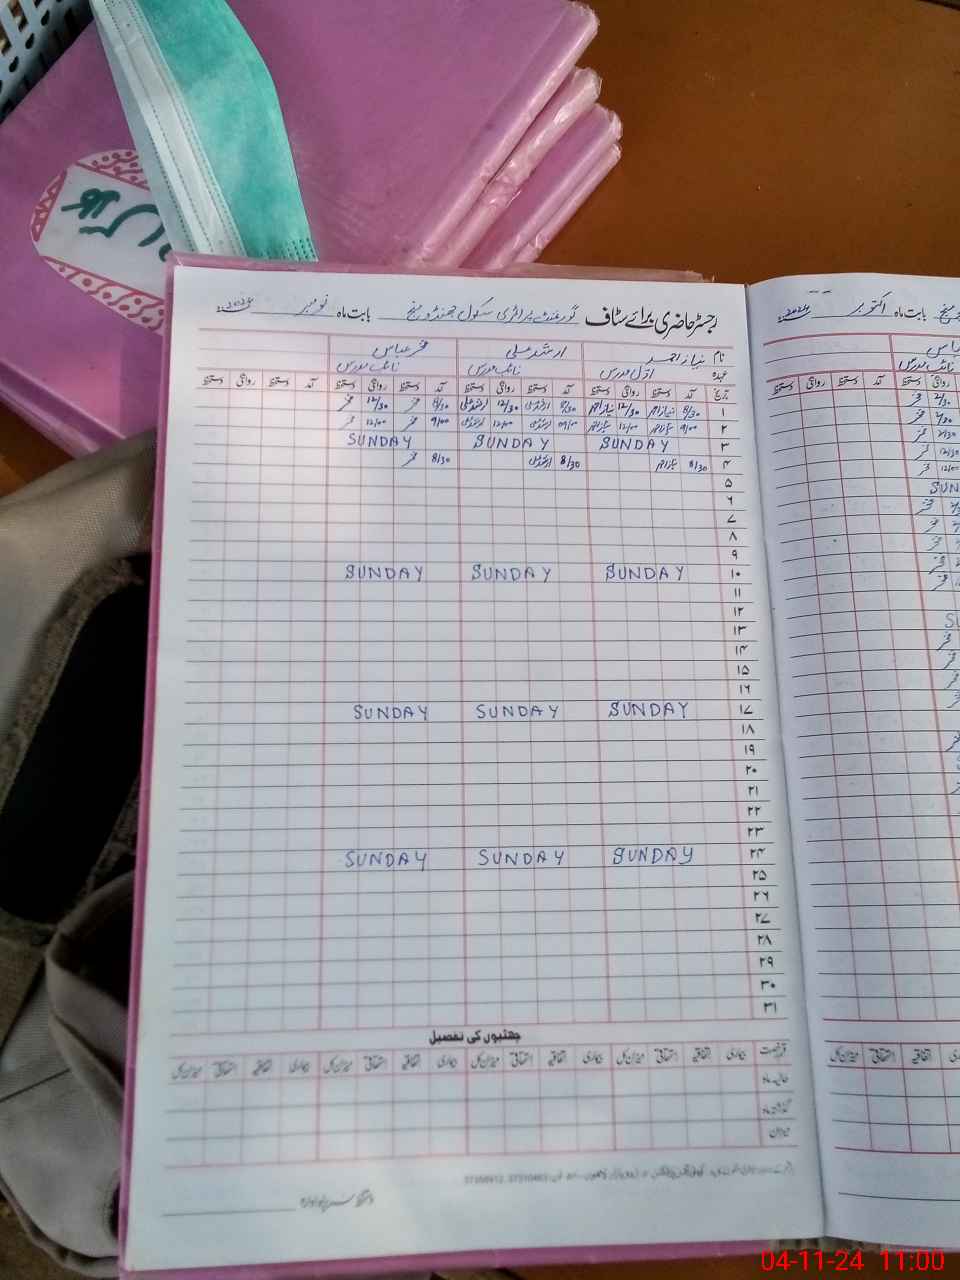 رجسٹر حاضری برائے سٹاف گورنمنٹ پرائمری سکول جھنڈو بابت ماہ نومبر ۲۰۲۴ء
نام نیاز احمد ارشد علی فخر عباس
عہدہ اول مدرس نائب مدرس نائب مدرس
تاریخ آمد دستخط روانگی دستخط آمد دستخط روانگی دستخط آمد دستخط روانگی دستخط آمد دستخط روانگی دستخط
۱ 8/30 نیاز احمد 12/30 نیاز احمد 8/30 ارشد علی 12/30 ارشد علی 8/30 فخر 12/30 فخر
۲ 9/00 12/00 9/00 12/00 9/00 فخر 12/00 فخر
۳ SUNDAY SUNDAY SUNDAY
۴ 8/30 8/30 8/30 فخر
۵
۶
۷
۸
۹
۱۰ SUNDAY SUNDAY SUNDAY
۱۱
۱۲
۱۳
۱۴
۱۵
۱۶
۱۷ SUNDAY SUNDAY SUNDAY
۱۸
۱۹
۲۰
۲۱
۲۲
۲۳
۲۴ SUNDAY SUNDAY SUNDAY
۲۵
۲۶
۲۷
۲۸
۲۹
۳۰
۳۱
چھٹیوں کی تفصیل
قسم رخصت بیماری اتفاقیہ استحقاقی میزان کل بیماری اتفاقیہ استحقاقی میزان کل بیماری اتفاقیہ استحقاقی میزان کل بیماری اتفاقیہ استحقاقی میزان کل
حالیہ ماہ
گذشتہ ماہ
میزان
بابت ماہ اکتوبر
04-11-24 11:00